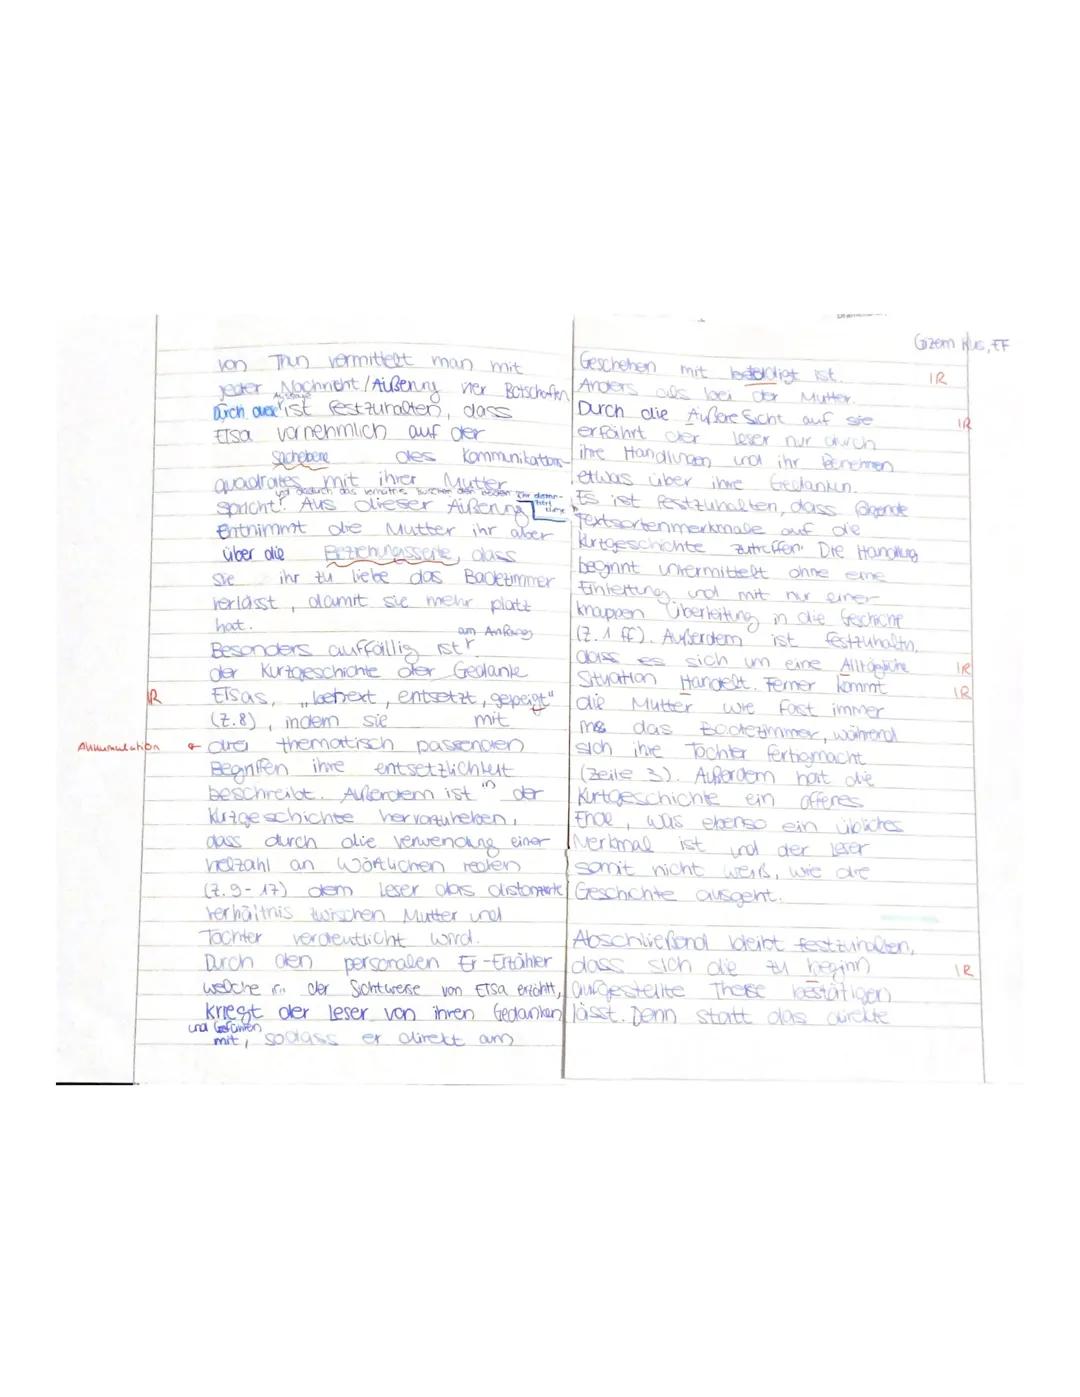 Gizem Kus, EF
von Thun vermittelt man mit
jeder Nachricht / Äußerung vier Botschaften
Aussage
Durch diese ist festzuhalten, dass
Elsa vornehmlich auf der
Sachebene des Kommunikations-
quadrates mit ihrer Mutter
und dadurch das Verhältnis zwischen den beiden
spricht. Aus dieser Äußerung
Entnimmt die Mutter ihr aber
über die Beziehungsseite, dass
sie ihr zu liebe das Badezimmer
verlässt, damit sie mehr platz
hat.
am Anfang
Besonders auffällig ist
der Kurzgeschichte der Gedanke
R Elsas, „behext, entsetzt, gepeigt"
(Z.8), indem sie mit
Akkumulation drei thematisch passenden
Begriffen ihre entsetzlichkeit
beschreibt. Außerdem ist in der
Kurzgeschichte hervorzuheben,
dass durch die Verwendung einer
vielzahl an Wörtlichen reden
(Z.9-17) dem Leser das distanzierte
Verhältnis zwischen Mutter und
Tochter verdeutlicht wird.
Durch den personalen Er-Erzähler
welche in der Sichtweise von Elsa erzählt,
kriegt der Leser von ihren Gedanken
und Gefühlen
mit, sodass er direkt am
Geschehen mit beteildigt ist. IR
Anders als bei der Mutter.
Durch die Äußere Sicht auf sie IR
erfährt der leser nur durch
ihre Handlungen und ihr Benehmen
etwas über ihre Gedanken.
Es ist festzuhalten, dass folgende
Textsortenmerkmale auf die
Kurzgeschichte zutreffen. Die Handlung
beginnt unvermittelt ohne eine
Einleitung und mit nur einer
knappen Überleitung in die Geschichte
(Z.1 ff). Außerdem ist festzuhaltn,
dass es sich um eine Alltägliche IR
Situation Handelt. Ferner kommt IR
die Mutter wie fast immer
ins das Badezimmer, während
sich ihre Tochter fertigmacht
(Zeile 3). Außerdem hat die
Kurzgeschichte ein offenes
Ende, was ebenso ein übliches
Merkmal ist und der leser
somit nicht weiß, wie die
Geschichte ausgeht.
Abschließend bleibt festzuhalten,
dass sich die zu beginn IR
aufgestellte These bestätigen
lässt. Denn statt das direkte